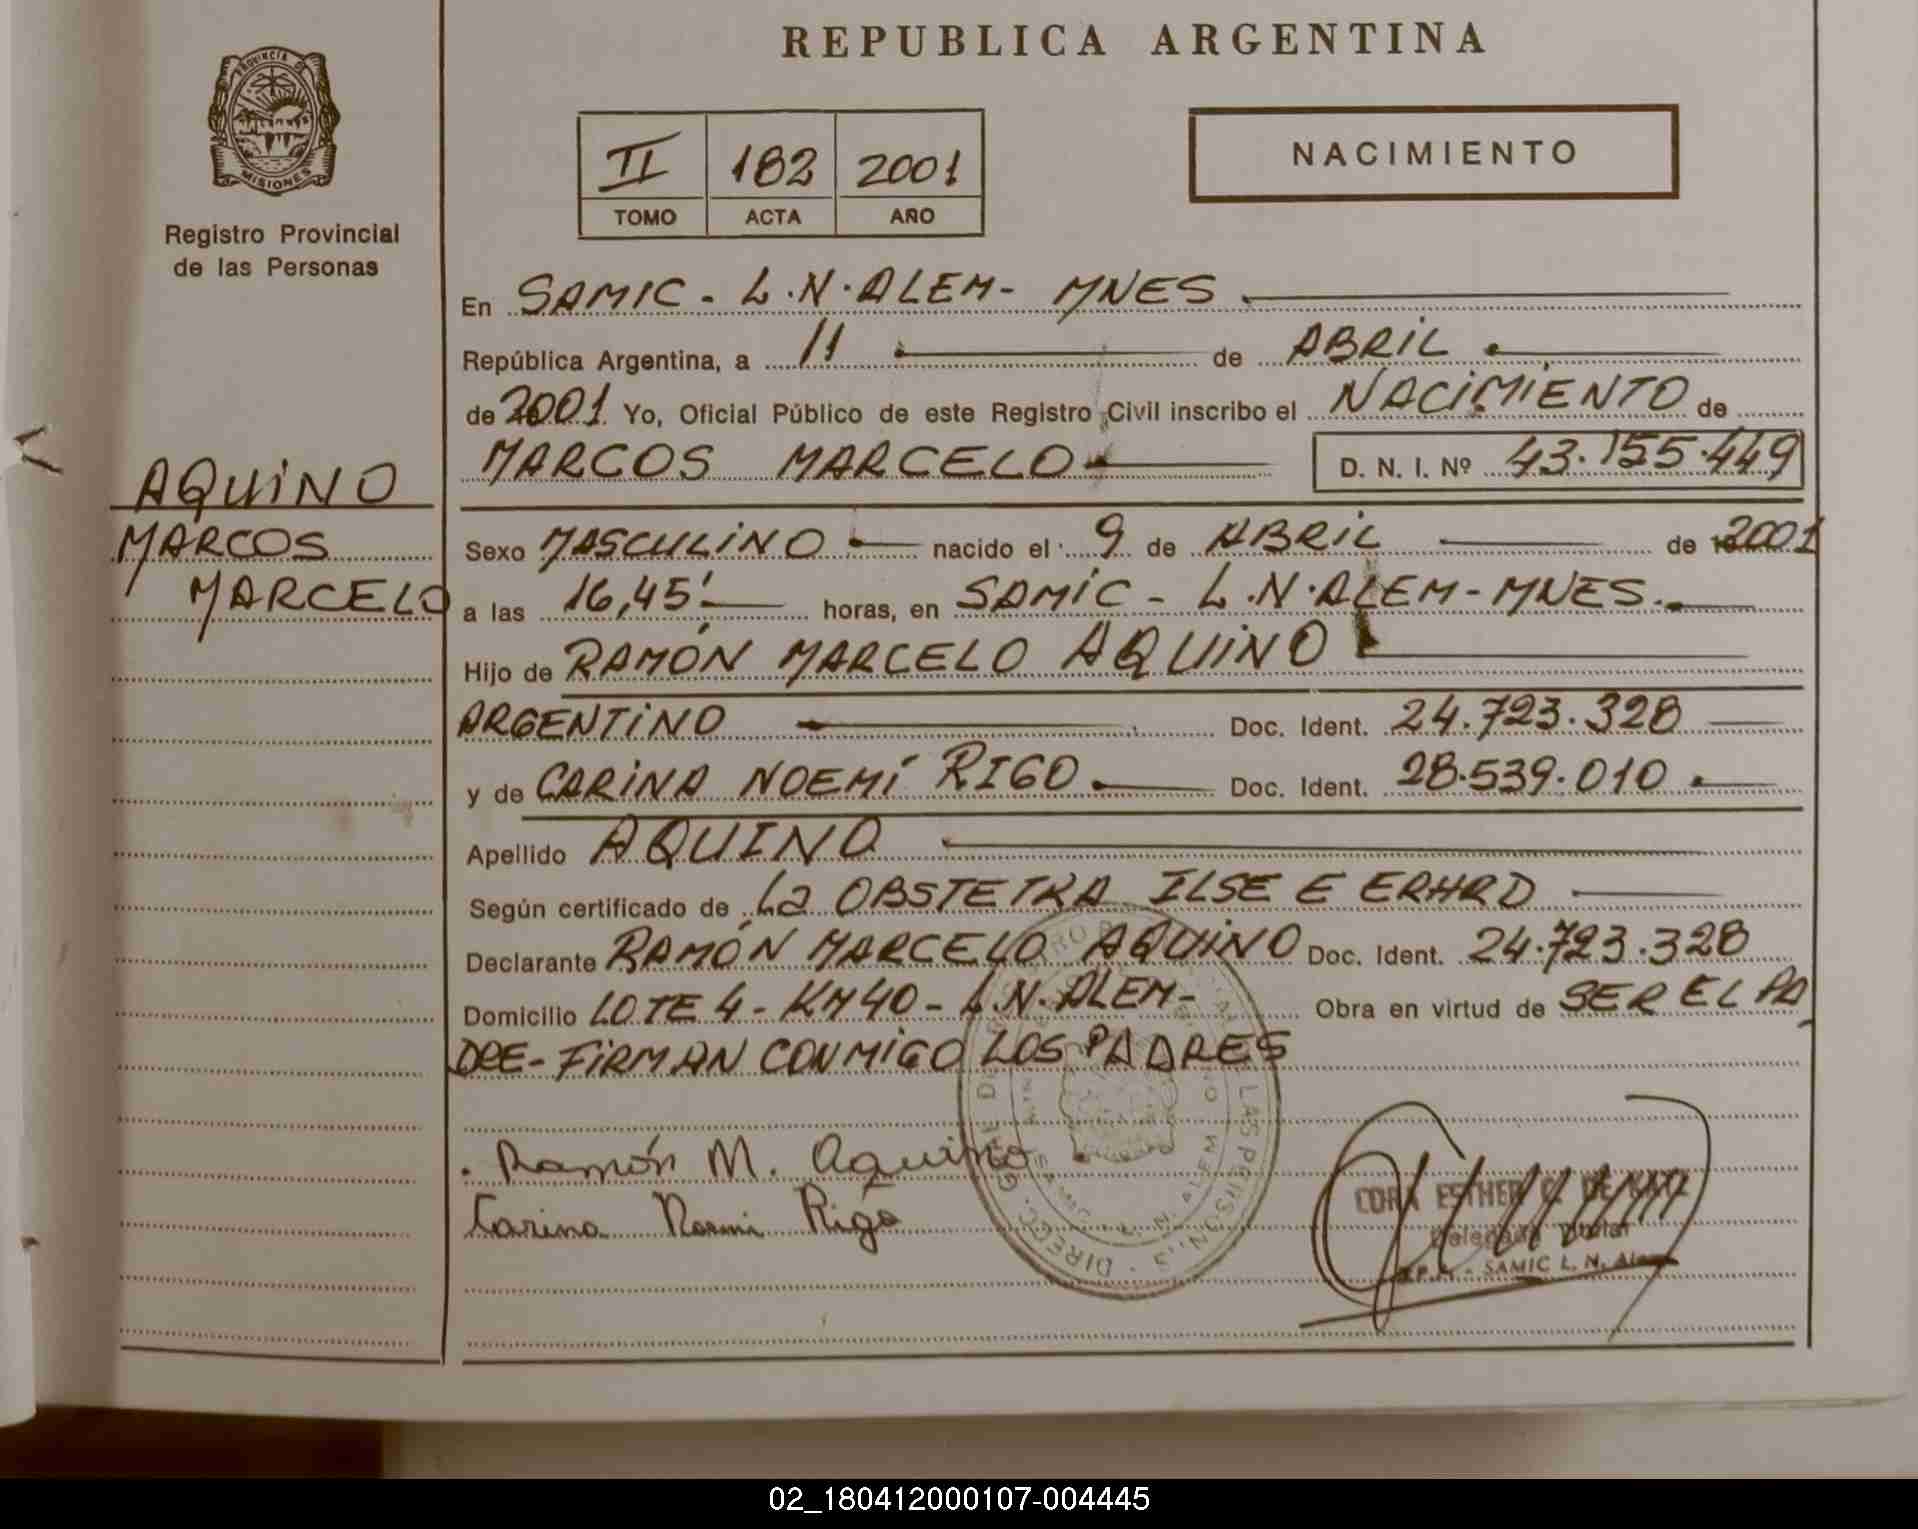 REPUBLICA ARGENTINA
PROVINCIA DE
MISIONES
Registro Provincial
de las Personas
II 182 2001
TOMO ACTA AÑO
NACIMIENTO
En SAMIC - L.N. ALEM - MNES
República Argentina, a 11 de ABRIL
de 2001 Yo, Oficial Público de este Registro Civil inscribo el NACIMIENTO de
MARCOS MARCELO D. N. I. Nº 43.155.449
AQUINO
MARCOS
MARCELO
Sexo MASCULINO nacido el 9 de ABRIL de 2001
a las 16,45' horas, en SAMIC - L.N. ALEM - MNES.
Hijo de RAMÓN MARCELO AQUINO
ARGENTINO Doc. Ident. 24.723.328
y de CARINA NOEMÍ RIGO Doc. Ident. 28.539.010
Apellido AQUINO
Según certificado de La OBSTETRA ILSE E ERHRD
Declarante RAMÓN MARCELO AQUINO Doc. Ident. 24.723.328
Domicilio LOTE 4 - KM 40 - L.N. ALEM - Obra en virtud de SER EL PA
DRE - FIRMAN CONMIGO LOS PADRES
Ramón M. Aquino
Carina Noemi Rigo
CORA ESTHER
Delegada Titular
SAMIC L. N. Alem
02_180412000107-004445